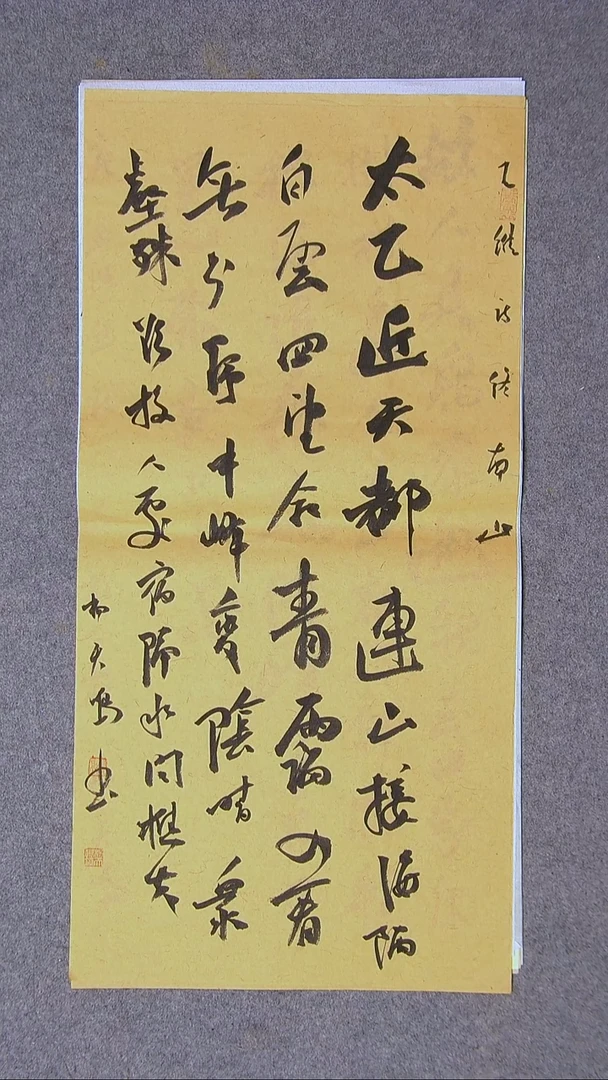 王維詩終南山
太乙近天都連山接海隅
白雲回望合青靄入看
無分野中峰變陰晴衆
壑殊欲投人處宿隔水問樵夫
天書